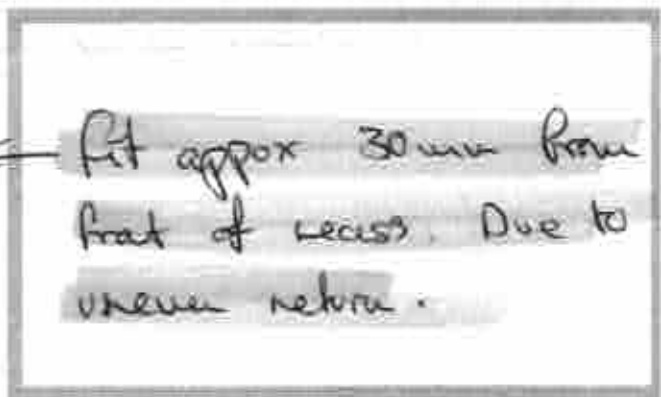 fit appox 30mm from
front of recess. Due to
uneven return.